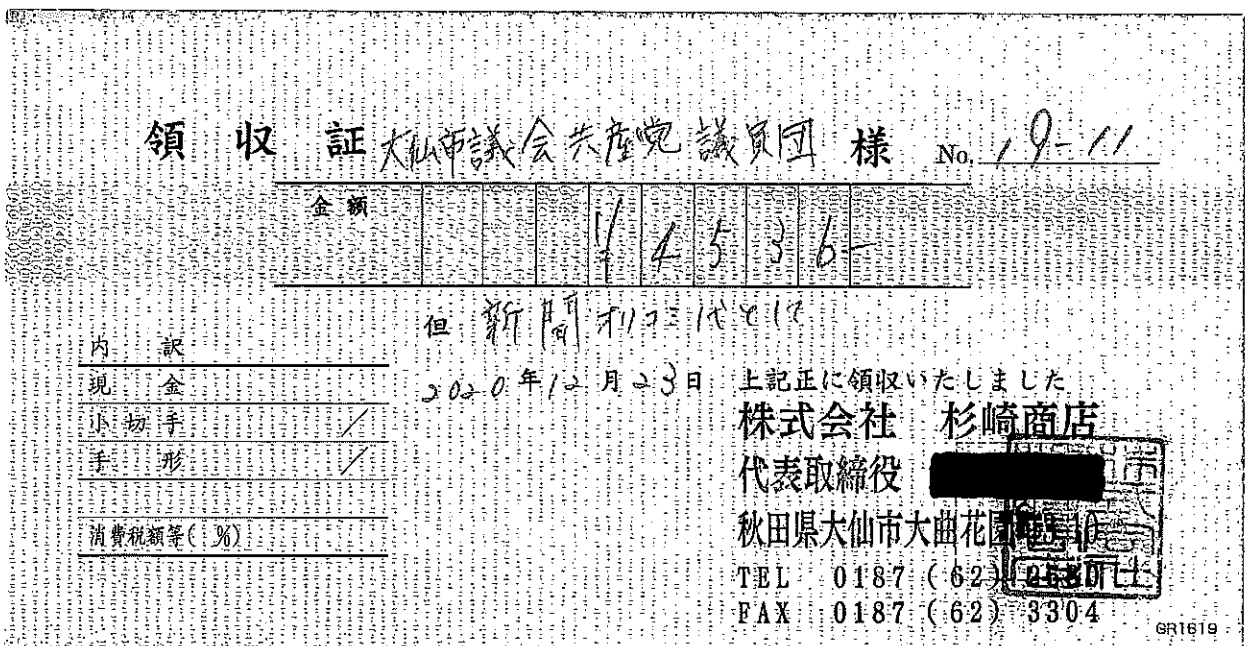 領 収 証 大仙市議会共産党議員団 様 No. 19-11
金額 ¥4536-
但 新聞オリコミ代として
内 訳
現 金
小切手 /
手 形 /
消費税額等( %)
2020年12月23日 上記正に領収いたしました
株式会社 杉崎商店
代表取締役
秋田県大仙市大曲花園町
TEL 0187 (62)
FAX 0187 (62) 3304
GR1619